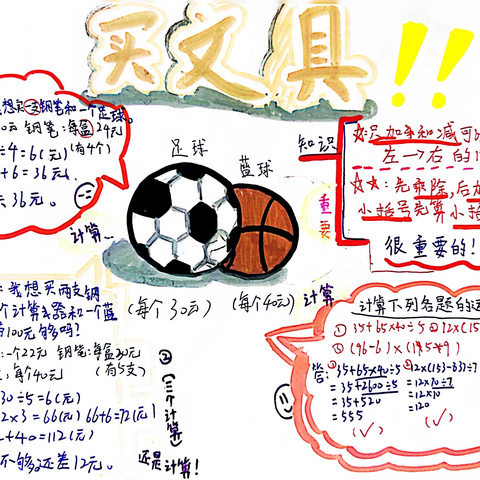 买文具!!
想买一支钢笔和一个足球。
0元 钢笔:每盒24元
÷4=6(元) (有4个)
+6=36元
36元。
计算
足球
篮球
(每个30元)
(每个40元)
重要
知识
只加和减可
左→右的
☆☆:先乘除,后加
小括号先算小括
很重要的!
我想买两支钢
个计算器和一个蓝
100元够吗?
一个22元 钢笔:每盒30元
每个40元 (有5支)
30÷5=6(元)
2×3=66(元) 66+6=72(元)
+40=112(元)
不够还差12元。
②
(三个计算)
还是计算!
计算
计算下列各题的
①35+65×40÷5 ②12×(15
③(96-6)×(
答:①35+65×40÷5
=35+2600÷5
=35+520
=555
(✓)
②12×(153-83)÷7
=12×70÷7
=12×10
=120
(✓)